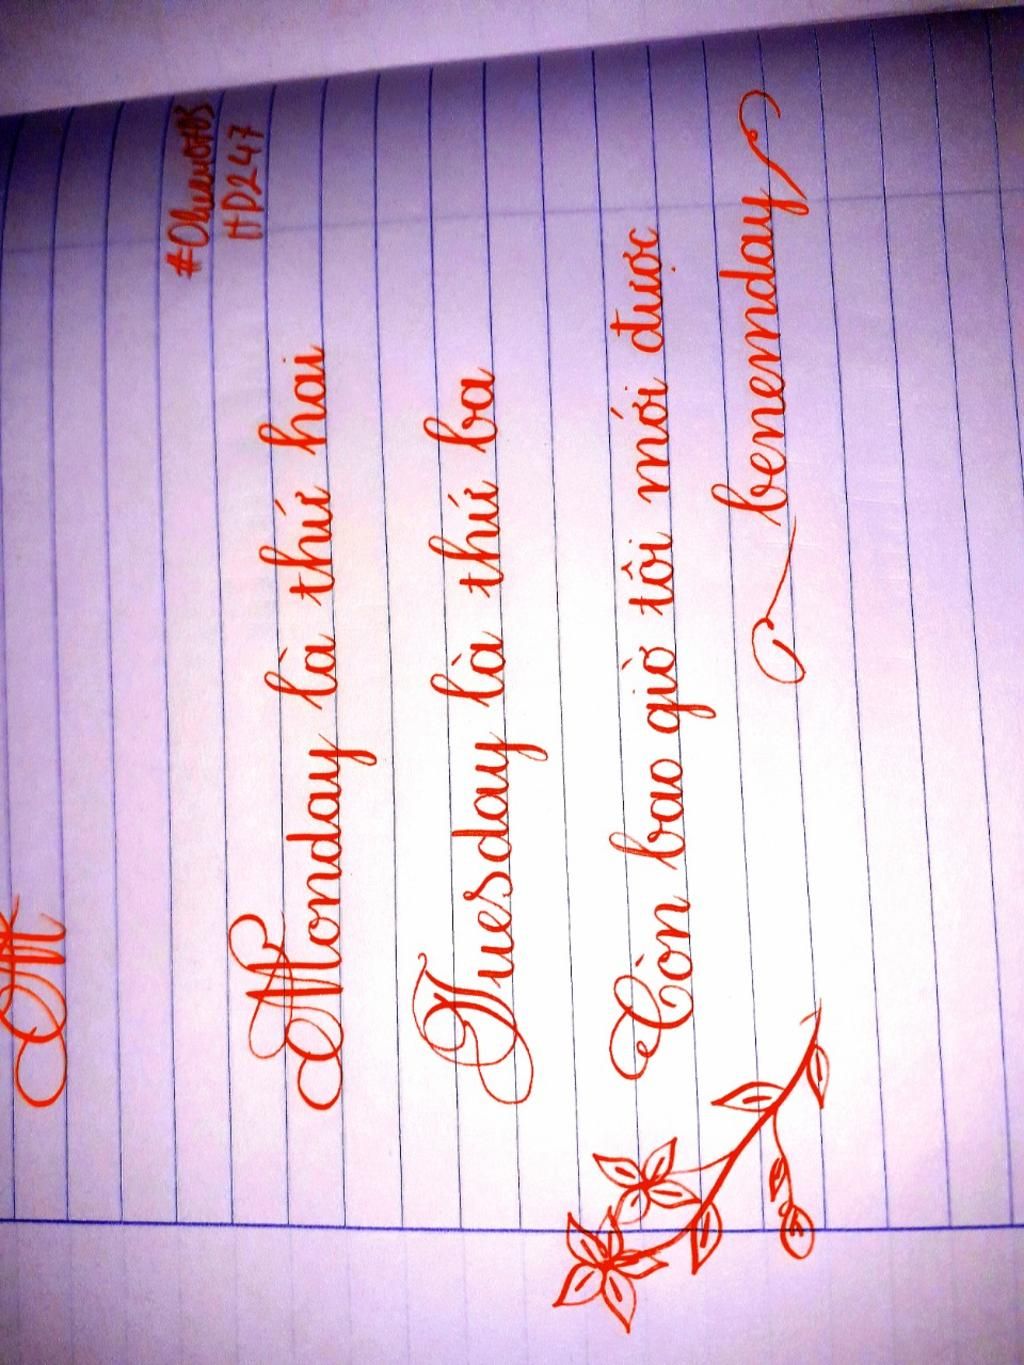 HD247
M
Monday là thứ hai
Tuesday là thứ ba
Còn bao giờ tôi mới được
benemday